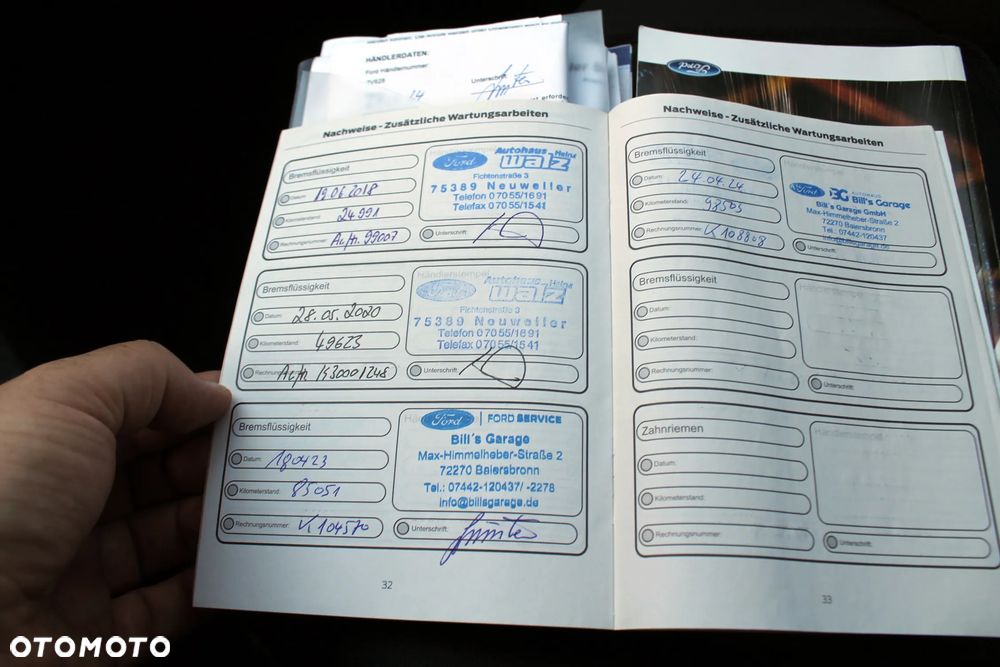 HÄNDLERDATEN:
Ford Händlernummer:
Unterschrift:
Ford
Nachweise - Zusätzliche Wartungsarbeiten
Bremsflüssigkeit
Datum: 19.06.2018
Kilometerstand: 24991
Rechnungsnummer: 99007
Ford Autohaus Heinz
walz
Fichtenstraße 3
75389 Neuweiler
Telefon 07055/1691
Telefax 07055/1541
Unterschrift:
Bremsflüssigkeit
Datum: 28.05.2020
Kilometerstand: 49623
Rechnungsnummer:
Händlerstempel
Ford Autohaus Heinz
walz
Fichtenstraße 3
75389 Neuweiler
Telefon 07055/1691
Telefax 07055/1541
Unterschrift:
Bremsflüssigkeit
Datum: 180423
Kilometerstand: 85051
Rechnungsnummer: V104570
Ford | FORD SERVICE
Bill's Garage
Max-Himmelheber-Straße 2
72270 Baiersbronn
Tel.: 07442-120437/ -2278
info@billsgarage.de
Unterschrift:
32
Nachweise - Zusätzliche Wartungsarbeiten
Bremsflüssigkeit
Datum: 24.04.24
Kilometerstand: 98505
Rechnungsnummer: V108808
Ford BG AUTOHAUS
Bill's Garage
Bill's Garage GmbH
Max-Himmelheber-Str. 2
72270 Baiersbronn
Tel.: 07442-120437
info@billsgarage.de
Unterschrift:
Bremsflüssigkeit
Datum:
Kilometerstand:
Rechnungsnummer:
Händlerstempel
Unterschrift:
Zahnriemen
Datum:
Kilometerstand:
Rechnungsnummer:
Händlerstempel
Unterschrift:
33
OTOMOTO